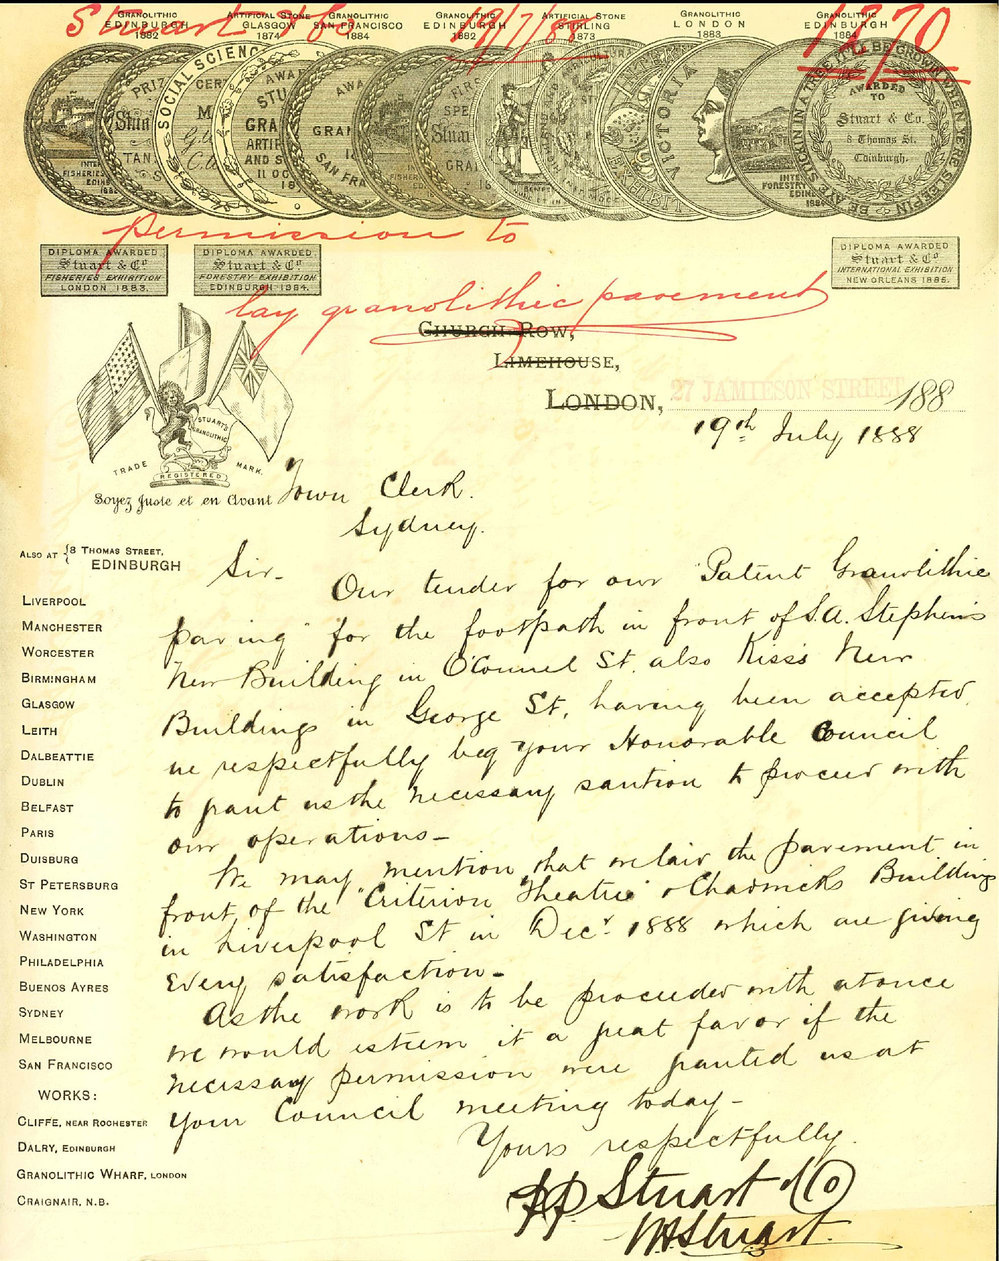 Stuart & Co 19/7/88 1370
GRANOLITHIC EDINBURGH 1882
ARTIFICIAL STONE GLASGOW 1874
GRANOLITHIC SAN FRANCISCO 1884
GRANOLITHIC EDINBURGH 1882
ARTIFICIAL STONE STIRLING 1873
GRANOLITHIC LONDON 1883
GRANOLITHIC EDINBURGH 1884
SOCIAL SCIENC
VICTORIA
BE AYE STICKIN IN A TREE IT'LL BE GROWIN WHEN YE'RE SLEEPIN
AWARDED TO
Stuart & Co.
8 Thomas St.
Edinburgh.
permission to
lay granolithic pavement
DIPLOMA AWARDED
Stuart & Co
FISHERIES EXHIBITION
LONDON 1883.
DIPLOMA AWARDED
Stuart & Co
FORESTRY EXHIBITION
EDINBURGH 1884.
DIPLOMA AWARDED
Stuart & Co
INTERNATIONAL EXHIBITION
NEW ORLEANS 1885.
CHURCH ROW,
LIMEHOUSE,
LONDON, 27 JAMIESON STREET 188
19th July 1888
STUART'S GRANOLITHIC
TRADE MARK.
REGISTERED
Soyez Juste et en Avant
Town Clerk.
Sydney.
ALSO AT 8 THOMAS STREET,
EDINBURGH
LIVERPOOL
MANCHESTER
WORCESTER
BIRMINGHAM
GLASGOW
LEITH
DALBEATTIE
DUBLIN
BELFAST
PARIS
DUISBURG
ST PETERSBURG
NEW YORK
WASHINGTON
PHILADELPHIA
BUENOS AYRES
SYDNEY
MELBOURNE
SAN FRANCISCO
WORKS:
CLIFFE, NEAR ROCHESTER
DALRY, EDINBURGH
GRANOLITHIC WHARF, LONDON
CRAIGNAIR, N.B.
Sir-
Our tender for our "Patent Granolithic
paving" for the footpath in front of S.A. Stephen's
New Building in O'Connel St. also Kiss's New
Buildings in George St, having been accepted,
we respectfully beg your Honorable Council
to grant us the necessary santion to proceed with
our operations-
We may mention that we laid the pavement in
front of the "Criterion Theatre" & Chadwick's Building
in Liverpool St in Decr 1888 which are giving
every satisfaction-
As the work is to be proceeded with at once
we would esteem it a great favor if the
necessay permission were granted us at
your Council meeting today-
Yours respectfully.
pp. Stuart & Co
W H Stuart.